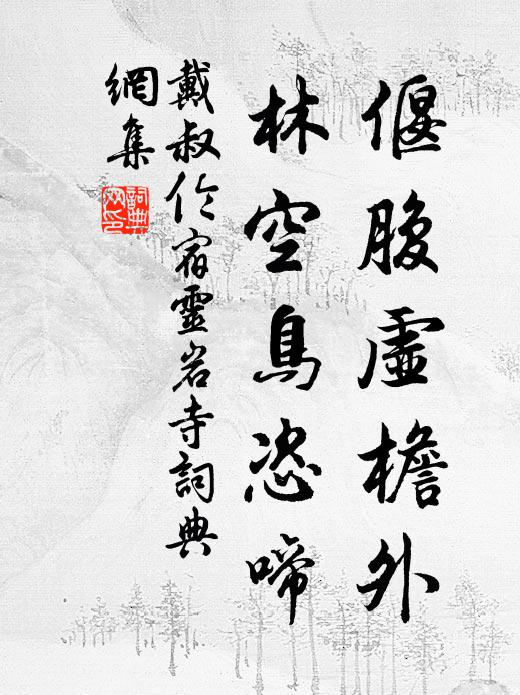 偃腹虛檐外
林空鳥恣啼
戴叔伦宿靈岩寺詞典
網集
詞典
网印